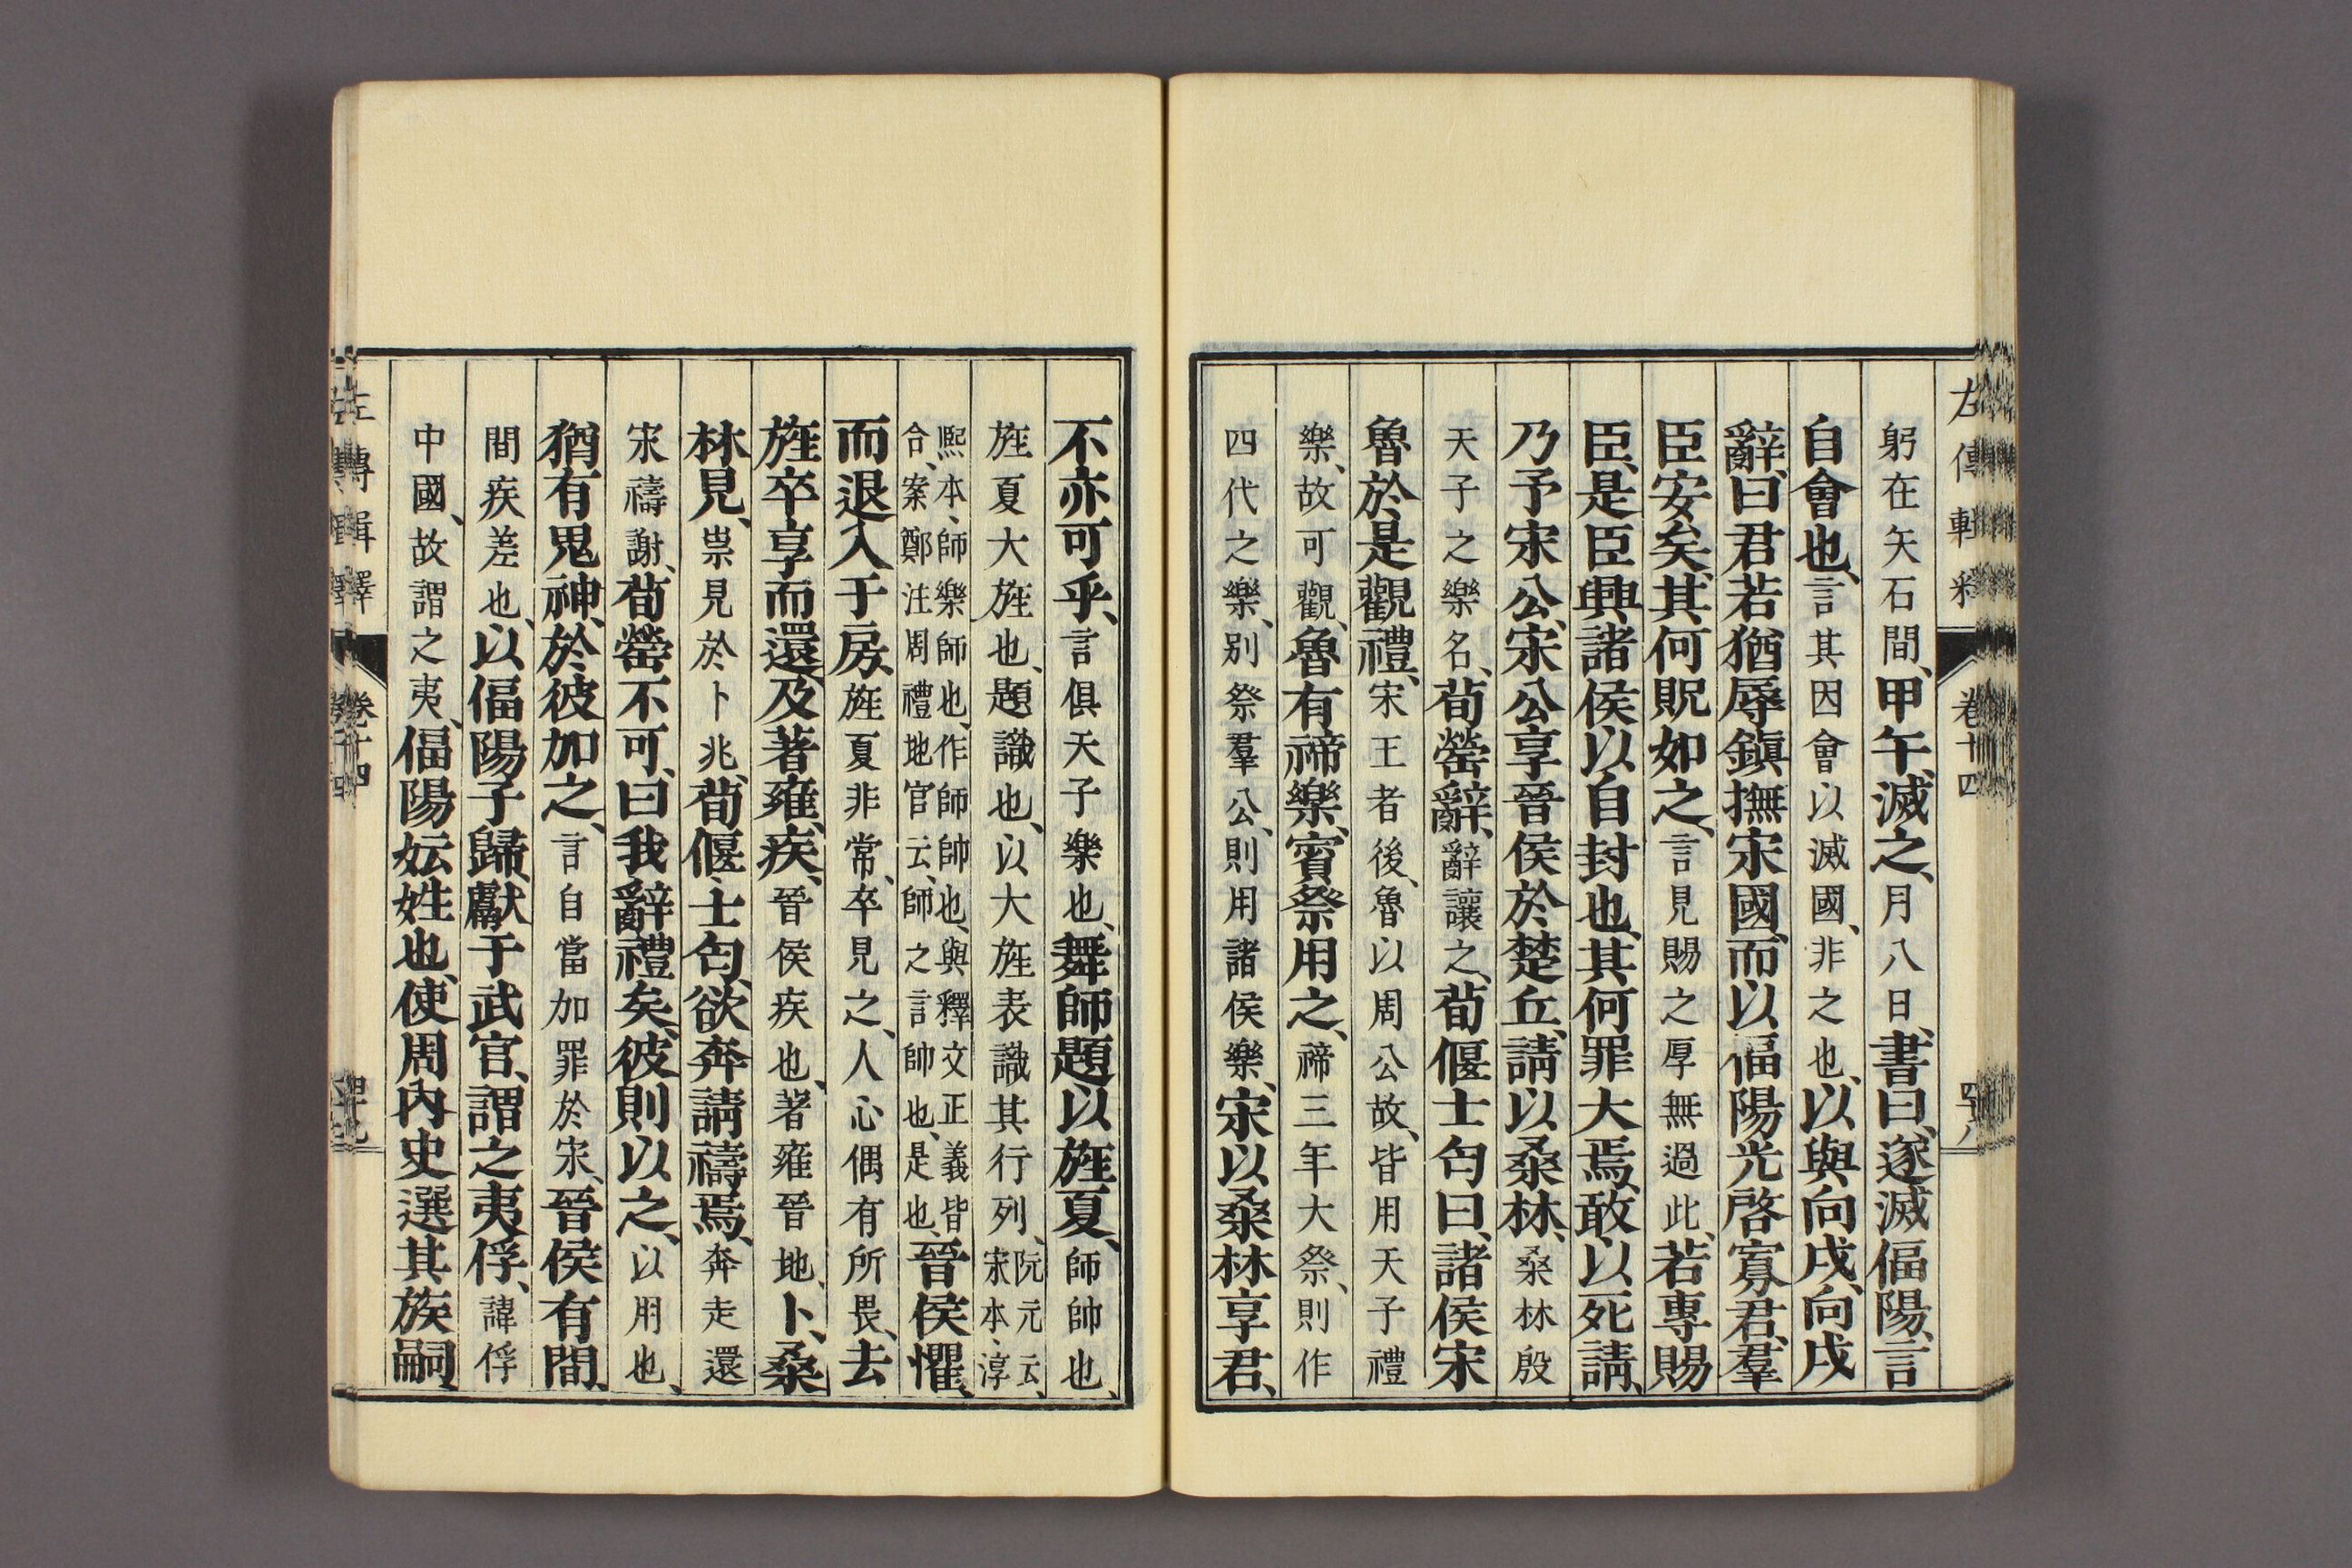 躬在矢石間、甲午滅之、月八日、書曰、遂滅偪陽、言
自會也、言其因會以滅國、非之也、以與向戌、向戌
辭、曰君若猶辱鎭撫宋國、而以偪陽光啓寡君、羣
臣安矣、其何貺如之、言見賜之厚無過此、若專賜
臣、是臣興諸侯以自封也、其何罪大焉、敢以死請、
乃予宋公、宋公享晉侯於楚丘、請以桑林、桑林殷
天子之樂名、荀罃辭、辭讓之、荀偃士匄曰、諸侯宋
魯於是觀禮、宋王者後、魯以周公故、皆用天子禮
樂、故可觀、魯有禘樂、賓祭用之、禘三年大祭、則作
四代之樂、別祭羣公、則用諸侯樂、宋以桑林享君、
不亦可乎、言俱天子樂也、舞師題以旌夏、師帥也、
旌夏大旌也、題識也、以大旌表識其行列、阮元云、宋本、淳
熙本、師樂師也、作師帥也、與釋文正義皆
合、案鄭注周禮地官云、師之言帥也、是也、晉侯懼、
而退入于房、旌夏非常、卒見之、人心偶有所畏、去
旌卒享而還、及著雍、疾、晉侯疾也、著雍晉地、卜、桑
林見、祟見於卜兆、荀偃、士匄、欲奔請禱焉、奔走還
宋禱謝、荀罃不可、曰我辭禮矣、彼則以之、以用也、
猶有鬼神、於彼加之、言自當加罪於宋、晉侯有間、
間疾差也、以偪陽子歸、獻于武宮、謂之夷俘、諱俘
中國、故謂之夷、偪陽妘姓也、使周內史選其族嗣、
左傳輯釋
卷十四